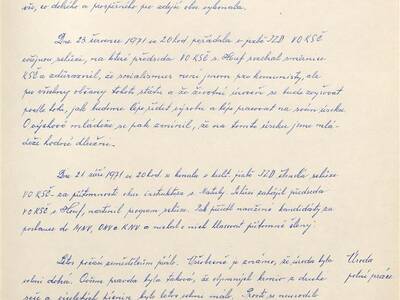 vše, co dobrého a prospěšného pro zdejší obec vykonala.
Dne 23. července 1971 ve 20 hod. pořádala v jetě JZD VO KSČ
veřejnou schůzi, na které předseda VO KSČ s. Houf rozebral směrnice
KSČ a zdůraznil, že socialismus není jenom pro komunisty, ale
pro všechny občany tohoto státu a že životní úroveň se bude zvyšovat
podle toho, jak budeme lépe řídit výrobu a lépe pracovat na svém úseku.
O výchově mládeže se pak zmínil, že na tomto úseku jsme mládeži hodně dlužni.
Dne 21. září 1971 ve 20 hod. se konala v kult. jizbě JZD členská schůze
VO KSČ za přítomnosti obv. instruktora s. Schůzi zahájil předseda
VO KSČ s. Houf, nastínil program schůze. Pak přečetl navržené kandidáty za
poslance do MNV, ONV a KNV a nechal o nich hlasovat přítomné členy.
Letos počasí zemědělcům přálo. Všeobecně je známo, že úroda byla
velmi dobrá. Ovšem pravda byla taková, že objemných krmiv z druhé
seče a bylo letos velmi málo. Prostě se neurodilo
Úroda
polní práce